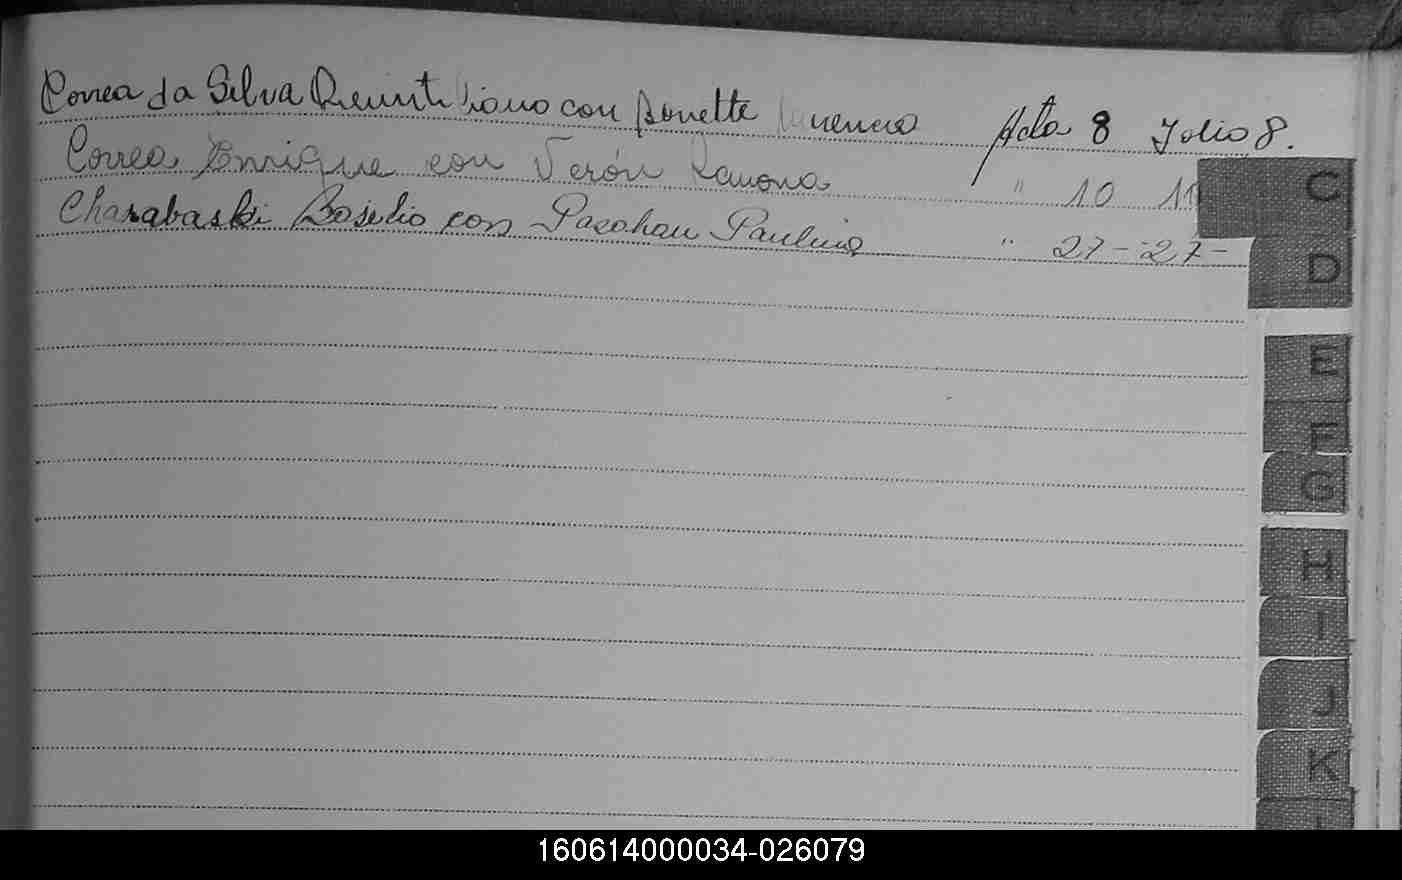 Correa da Silva con Bonette Acta 8 Folio 8.
Correa Enrique con Verón Ramona " 10 11
Charabaski Basilio con Pasohau Paulina " 27 - 27 -
C
D
E
F
G
H
I
J
K
160614000034-026079